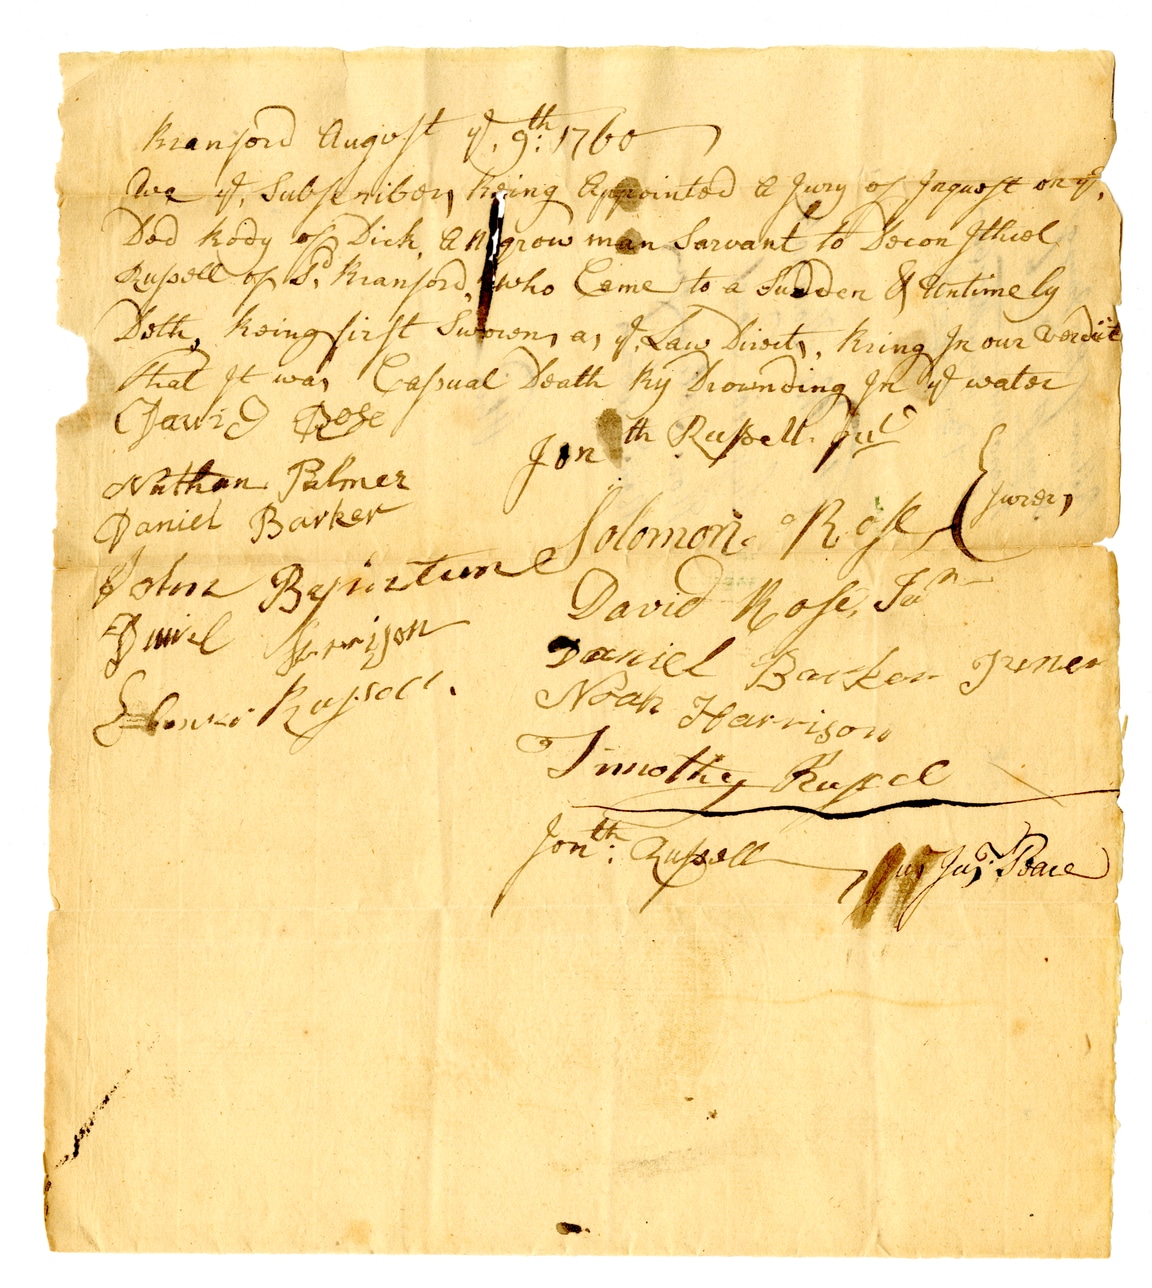 Branford August ye. 9th: 1760
We ye. Subscribers Being Appointed a Jury of Inquest on ye.
Ded Body of Dick, a Negrow man Sarvant to Decon Ithiel
Russell of Sd. Branford, who Came to a Sudden & Untimely
Deth, Being first Sworen, as ye. Law Directs, Bring In our Verdict
that It was Casual Death By Drownding In ye water
David Rose
Nathan Palmer
Daniel Barker
John
Daniel Harrison
Russell.
Jonth Russell. Jur
Solomon Rose
Jurers
David Rose, Jun
Daniel Barker
Noah Harrison
Timothy Russel
Jonth: Russell Jus. Peace